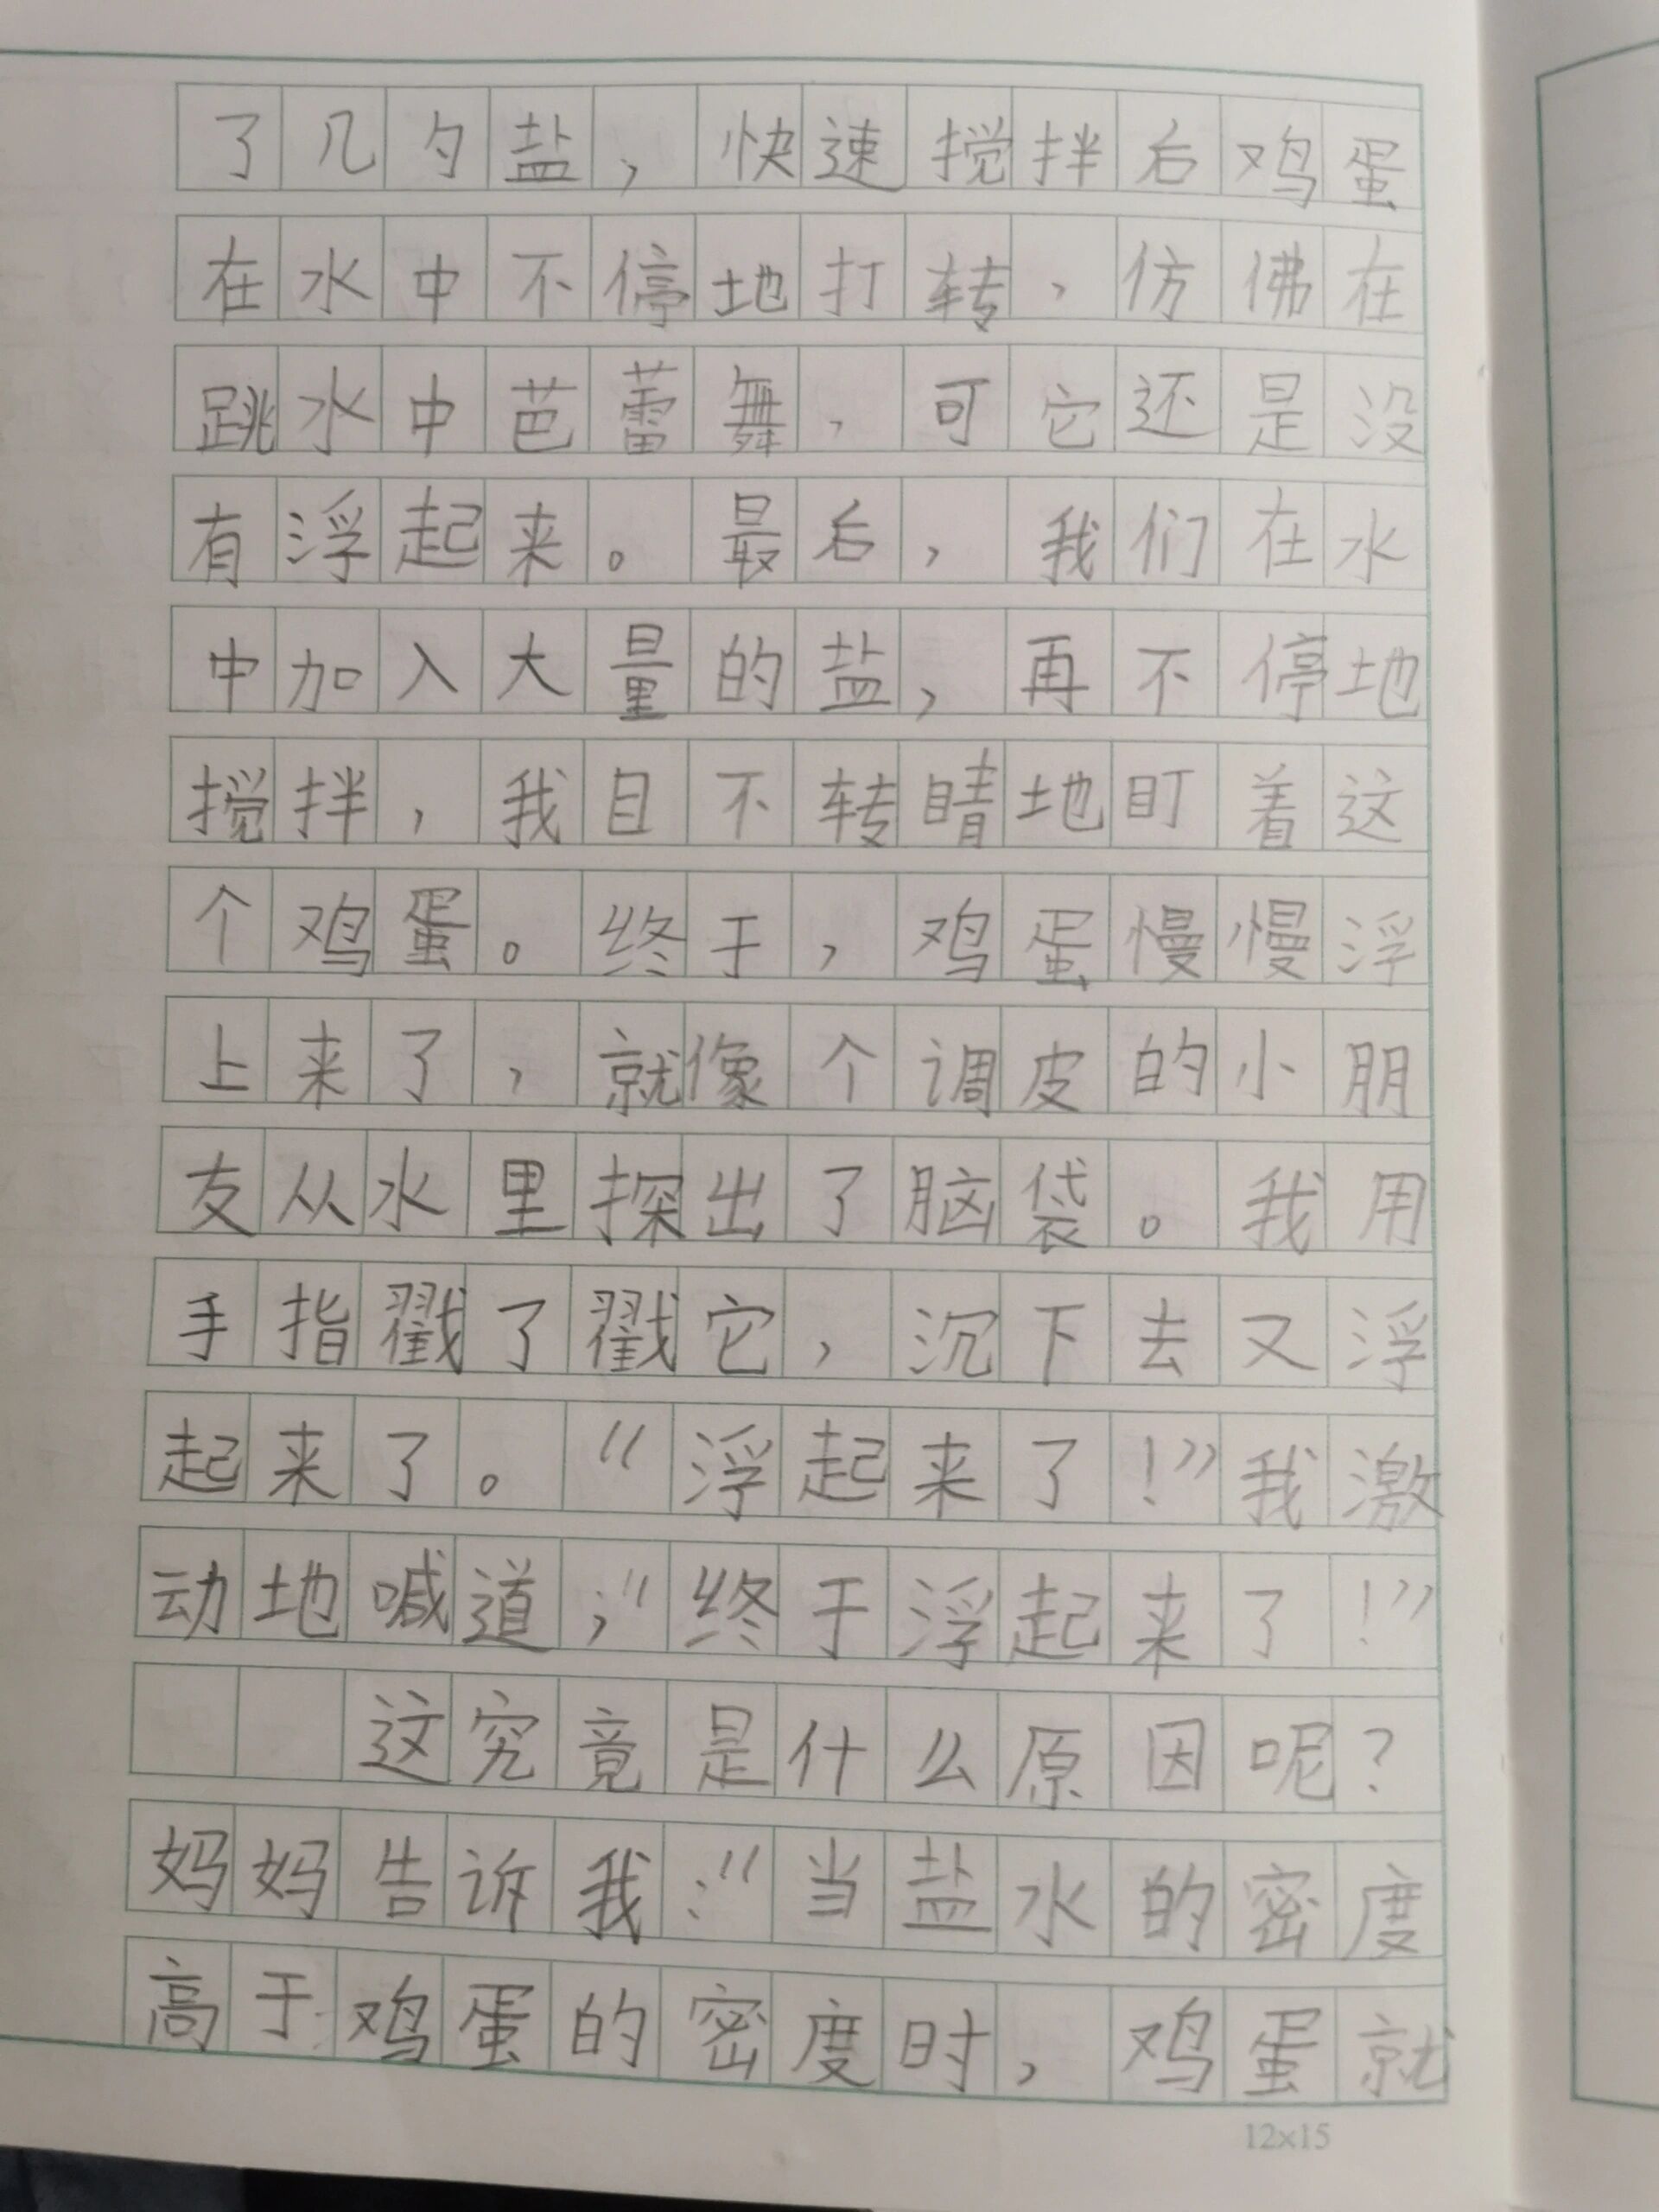 了几勺盐，快速搅拌后鸡蛋
在水中不停地打转，仿佛在
跳水中芭蕾舞，可它还是没
有浮起来。最后，我们在水
中加入大量的盐，再不停地
搅拌，我目不转睛地盯着这
个鸡蛋。终于，鸡蛋慢慢浮
上来了，就像个调皮的小朋
友从水里探出了脑袋。我用
手指戳了戳它，沉下去又浮
起来了。“浮起来了！”我激
动地喊道；“终于浮起来了！”
这究竟是什么原因呢？
妈妈告诉我：“当盐水的密度
高于鸡蛋的密度时，鸡蛋就
12×15